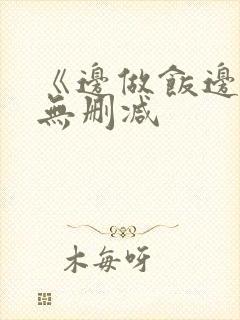 《邊做飯邊
無刪减
木每呀